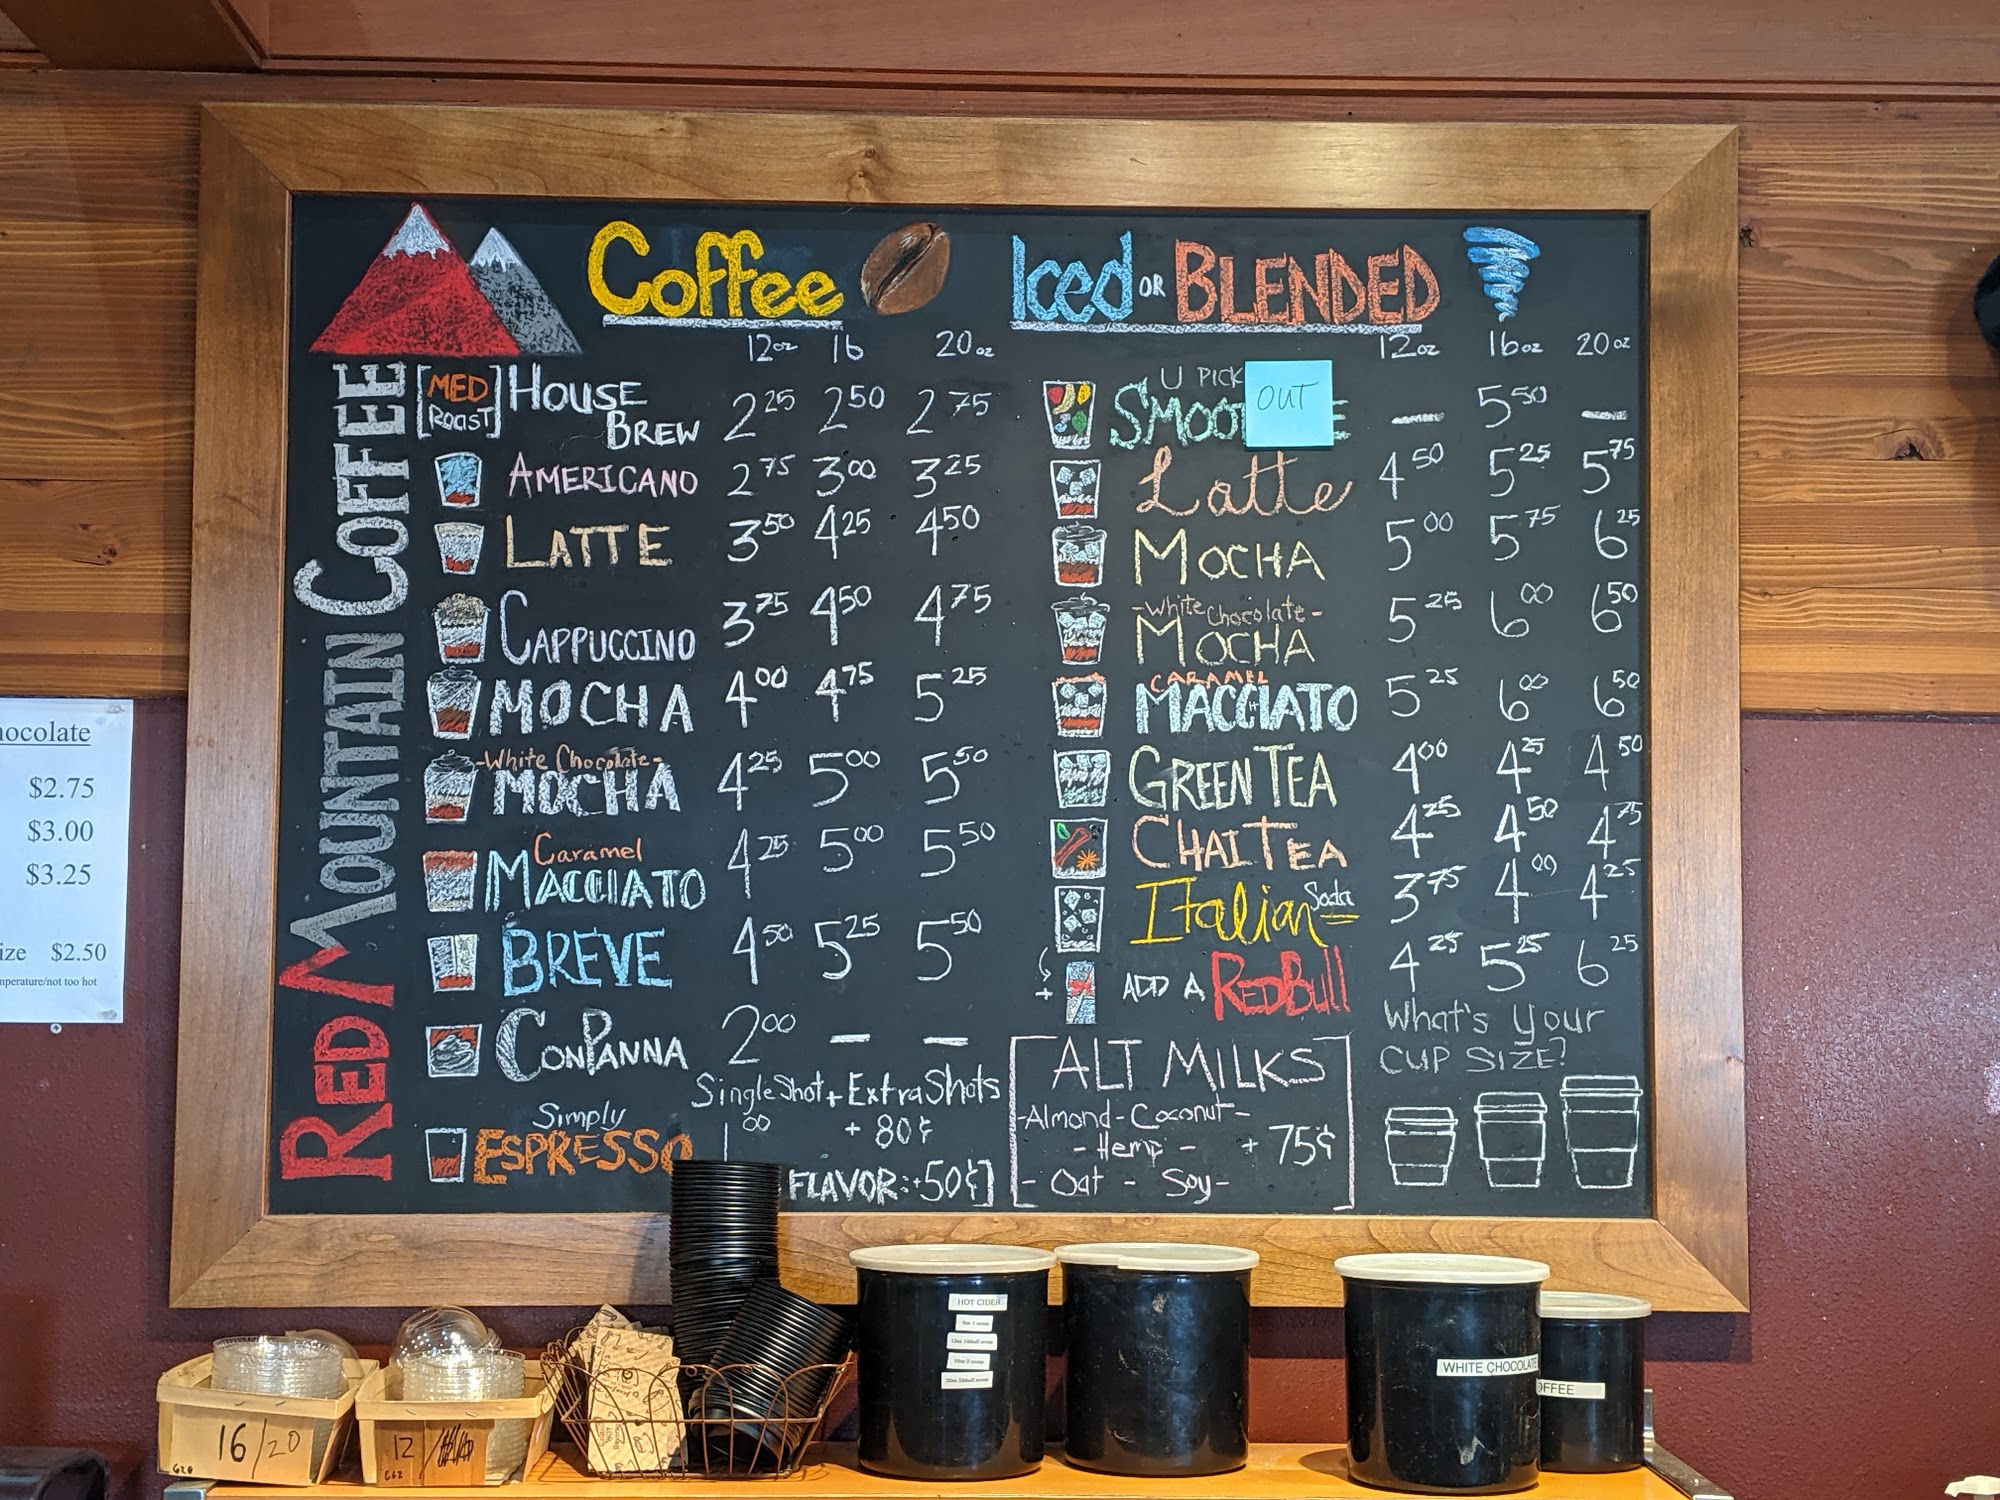 RED MOUNTAIN COFFEE
Coffee
12oz 16 20oz
[MED ROAST] HOUSE BREW 2.25 2.50 2.75
AMERICANO 2.75 3.00 3.25
LATTE 3.50 4.25 4.50
CAPPUCCINO 3.75 4.50 4.75
MOCHA 4.00 4.75 5.25
-White Chocolate-
MOCHA 4.25 5.00 5.50
Caramel
MACCIATO 4.25 5.00 5.50
BREVE 4.50 5.25 5.50
CONPANNA 2.00 — —
Single Shot + Extra Shots
Simply
ESPRESSO 1.00 + 80¢
FLAVOR: +50¢]
Iced OR BLENDED
12oz 16oz 20oz
U PICK
SMOO E — 5.50 —
OUT
Latte 4.50 5.25 5.75
MOCHA 5.00 5.75 6.25
-White Chocolate-
MOCHA 5.25 6.00 6.50
CARAMEL
MACCHIATO 5.25 6.00 6.50
GREEN TEA 4.00 4.25 4.50
CHAI TEA 4.25 4.50 4.75
Italian Soda 3.75 4.00 4.25
+ ADD A REDBULL 4.25 5.25 6.25
[ALT MILKS]
-Almond-Coconut-
-Hemp- +75¢
-Oat - Soy-
What's your
CUP SIZE?
hocolate
$2.75
$3.00
$3.25
ize $2.50
mperature/not too hot
16/20
12
HOT CIDER
WHITE CHOCOLATE
OFFEE